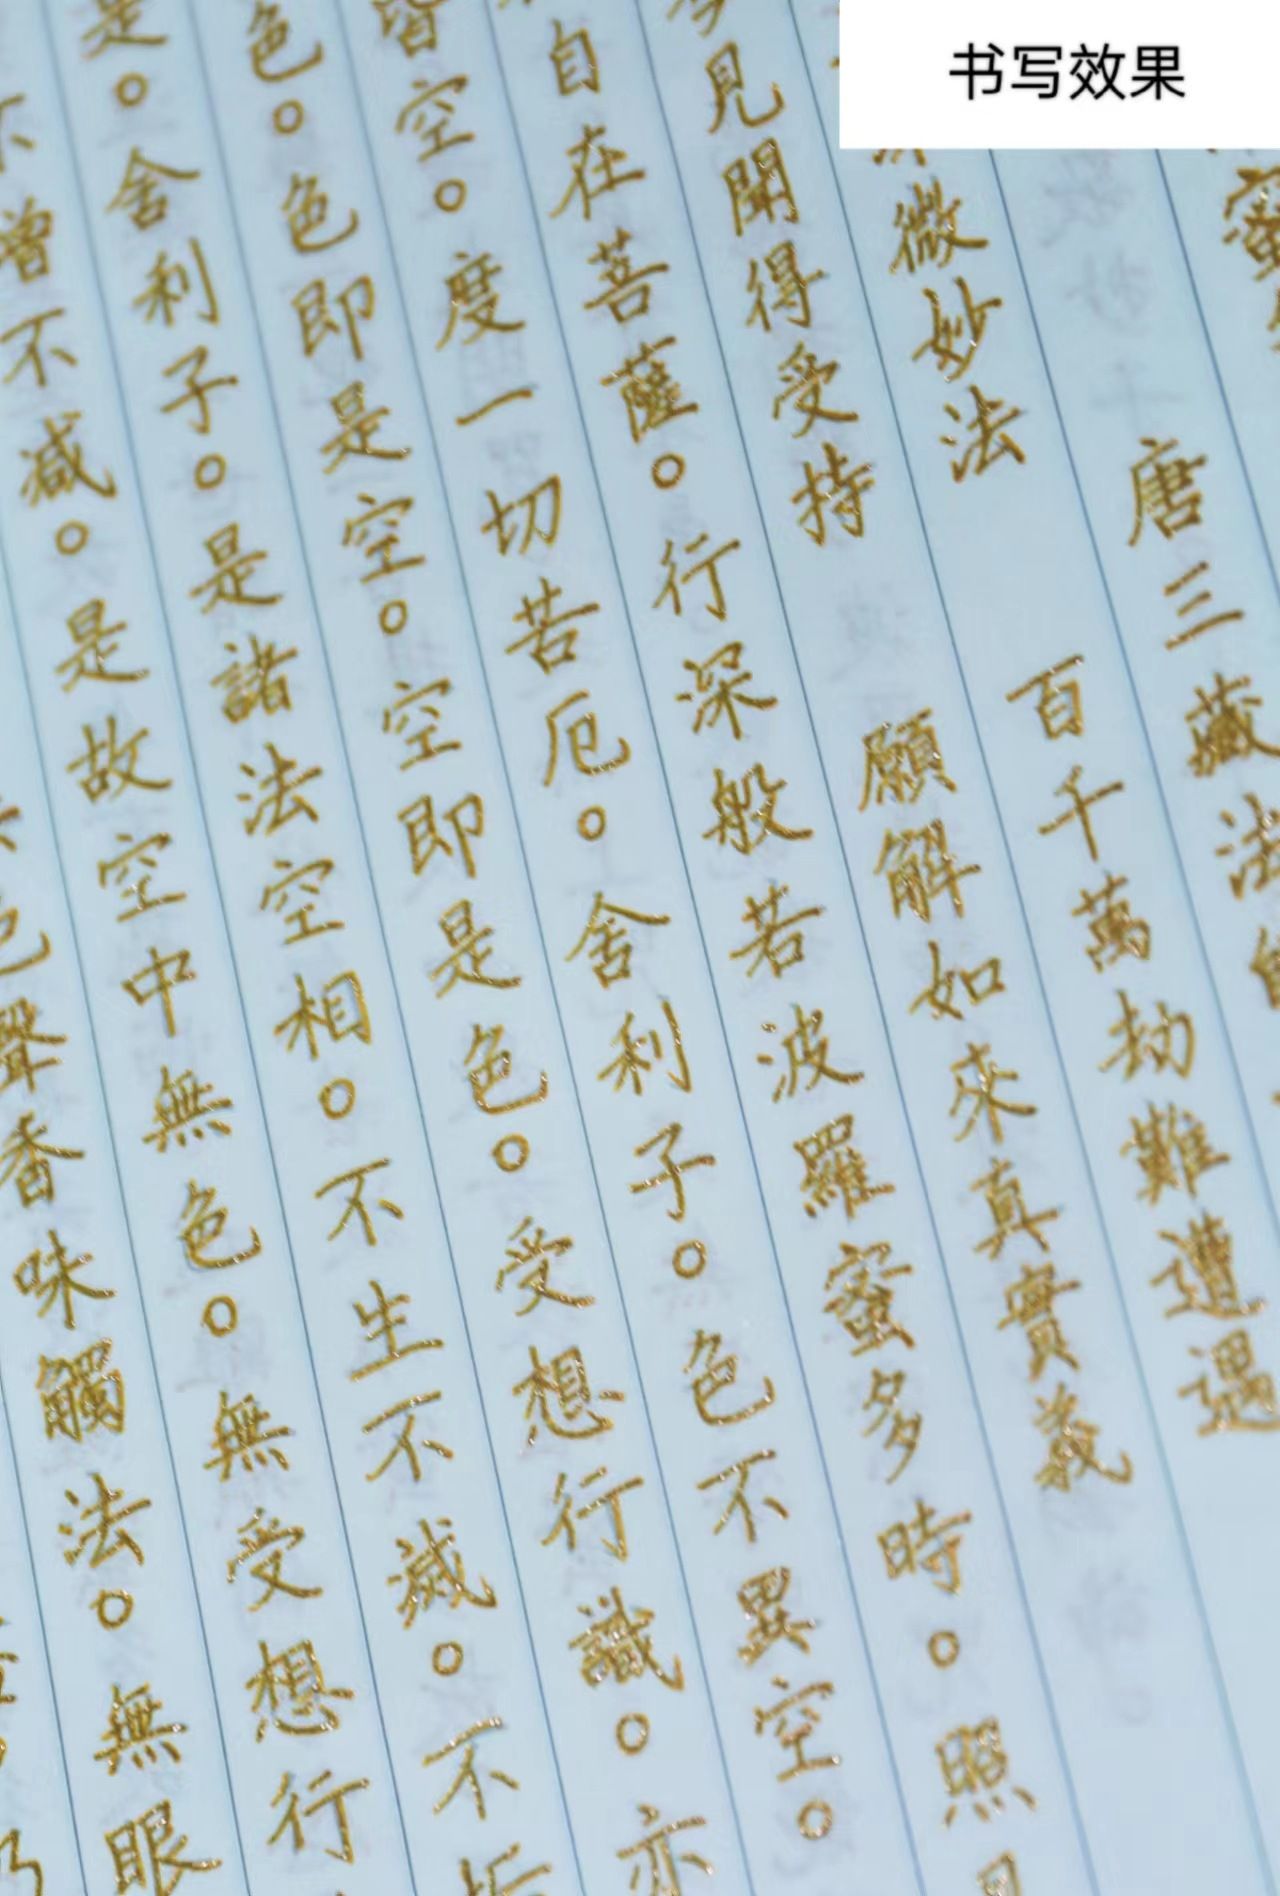 书写效果
蜜
唐三藏法
微妙法 百千萬劫難遭遇
見聞得受持 願解如來真實義
自在菩薩。行深般若波羅蜜多時。照
皆空。度一切苦厄。舍利子。色不異空。
色。色即是空。空即是色。受想行識。亦
是。舍利子。是諸法空相。不生不滅。不垢
不增不減。是故空中無色。無受想行
色聲香味觸法。無眼